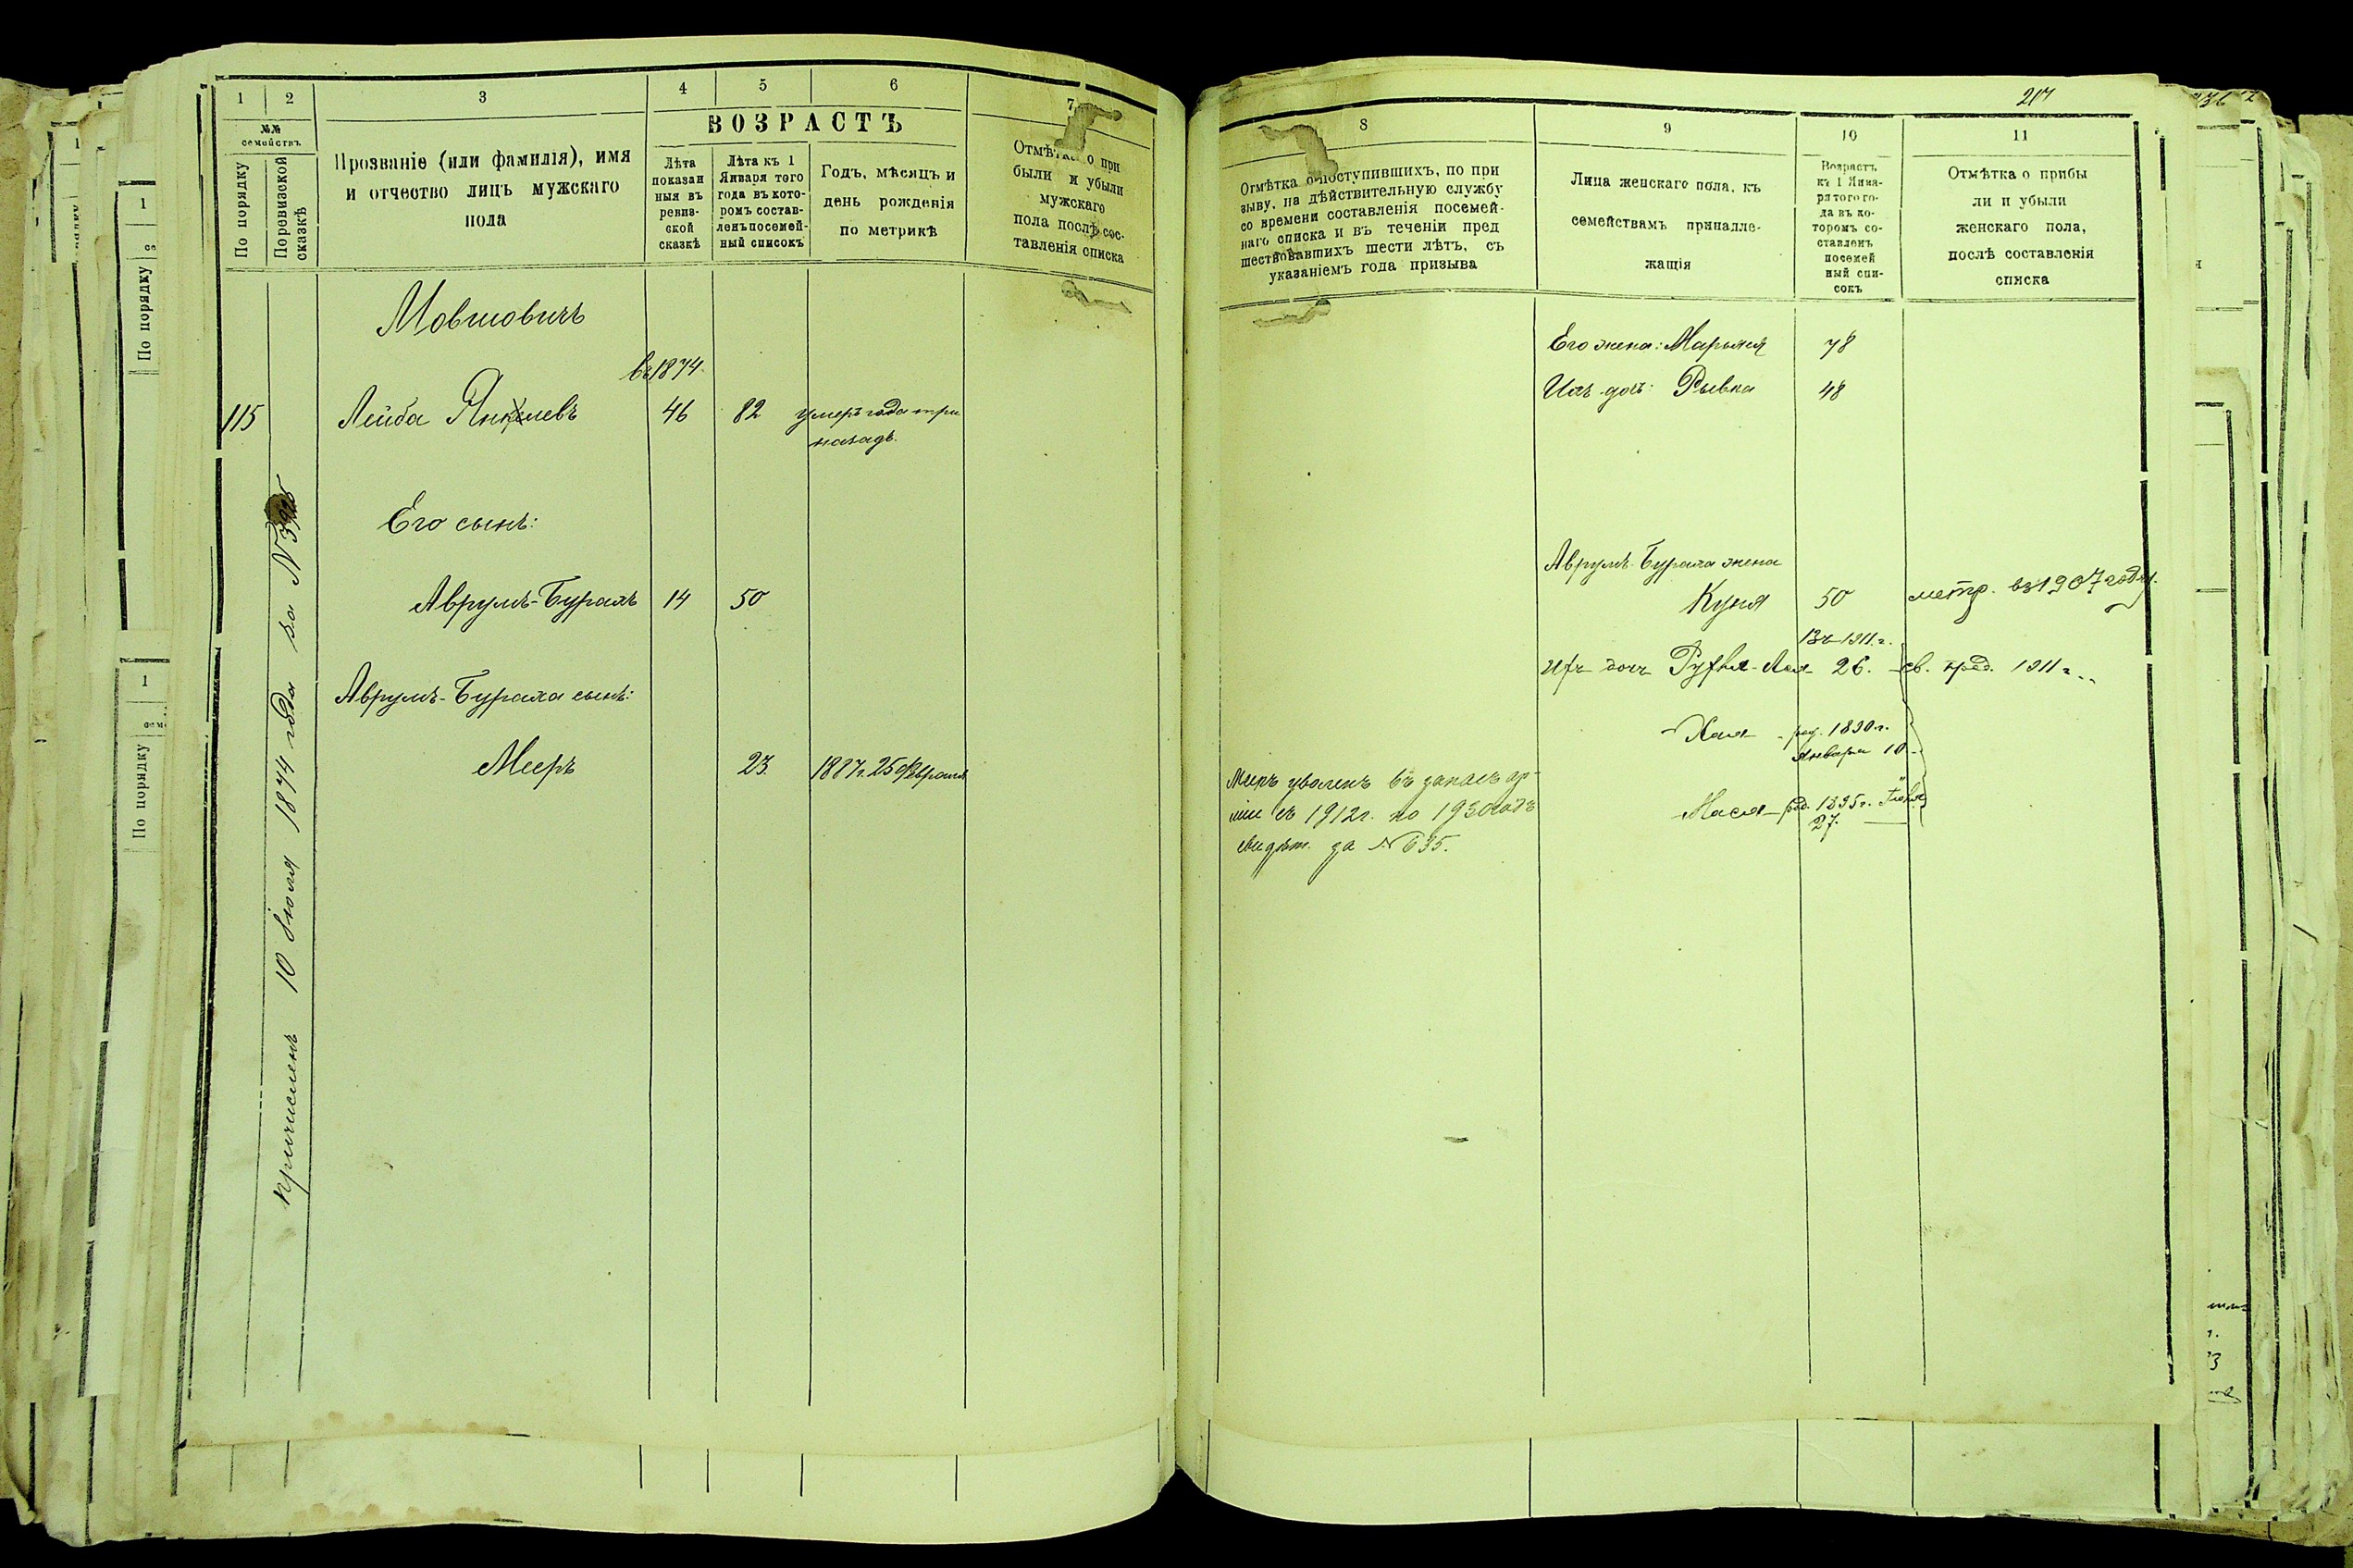 1
2
3
4
5
6
7
№№ семействъ
По порядку
По ревизской сказкѣ
Прозваніе (или фамилія), имя
и отчество лицъ мужскаго
пола
ВОЗРАСТЪ
Лѣта
показан
ныя въ
ревиз-
ской
сказкѣ
Лѣта къ 1
Января того
года въ кото-
ромъ состав-
ленъ посемей-
ный списокъ
Годъ, мѣсяцъ и
день рожденія
по метрикѣ
Отмѣтка о при
были и убыли
мужскаго
пола послѣ сос-
тавленія списка
Мовшовичъ
въ 1874
115
Лейба Янкелевъ
46
82
умеръ года три
назадъ.
Его сынъ:
Аврумъ-Бурахъ
14
50
Аврумъ-Бураха сынъ:
Мееръ
23
1887 г. 25 Февраля
причисленъ 10 Іюля 1874 года за N
207
8
9
10
11
Отмѣтка о поступившихъ, по при
зыву, на дѣйствительную службу
со времени составленія посемей-
наго списка и въ теченіи пред
шествовавшихъ шести лѣтъ, съ
указаніемъ года призыва
Лица женскаго пола, къ
семействамъ принадле-
жащія
Возрастъ
къ 1 Янва-
ря того го-
да въ ко-
торомъ со-
ставленъ
посемей
ный спи-
сокъ
Отмѣтка о прибы
ли и убыли
женскаго пола,
послѣ составленія
списка
Его жена: Марьяся
78
Ихъ дочь: Рывка
48
Аврумъ-Бураха жена
Куня
50
метр. въ 1907 году.
Въ 1911 г.
Ихъ дочь
26.
св. пред. 1911 г.
Хая - род. 1890 г.
Января 10
Мася - род. 1895 г.
27.
Мееръ уволенъ въ запасъ ар-
міи съ 1912 г. по 1930 годъ
свидѣт. за № 635.